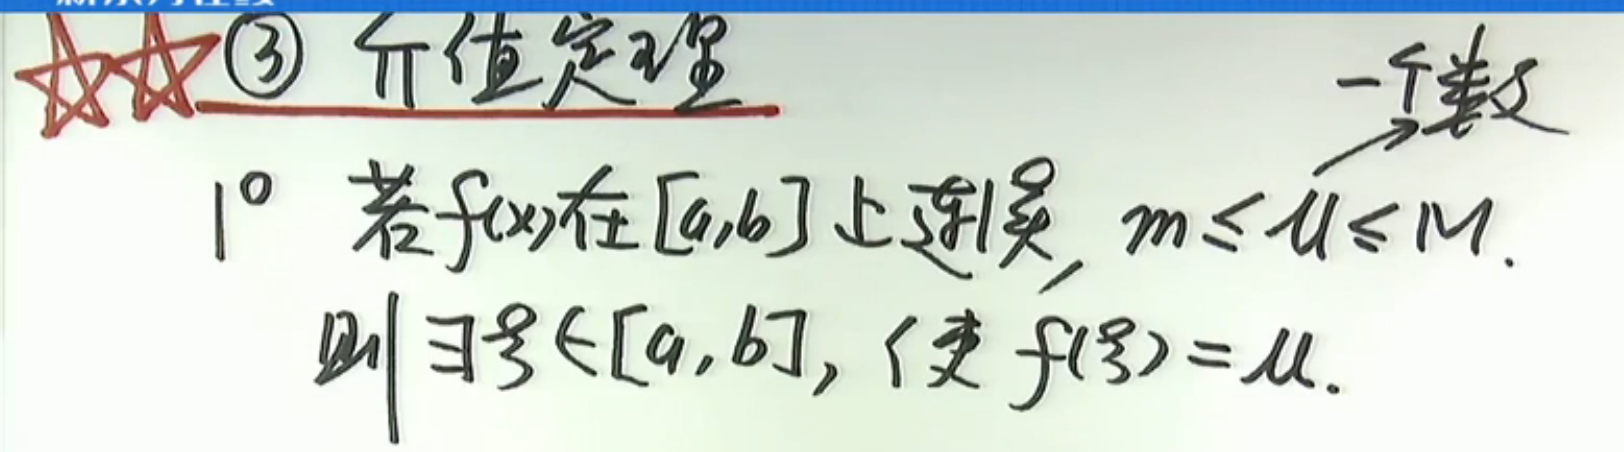 ③ 介值定理
一个数
1° 若f(x)在[a,b]上连续, m≤μ≤M.
则∃ξ∈[a,b], 使f(ξ)=μ.